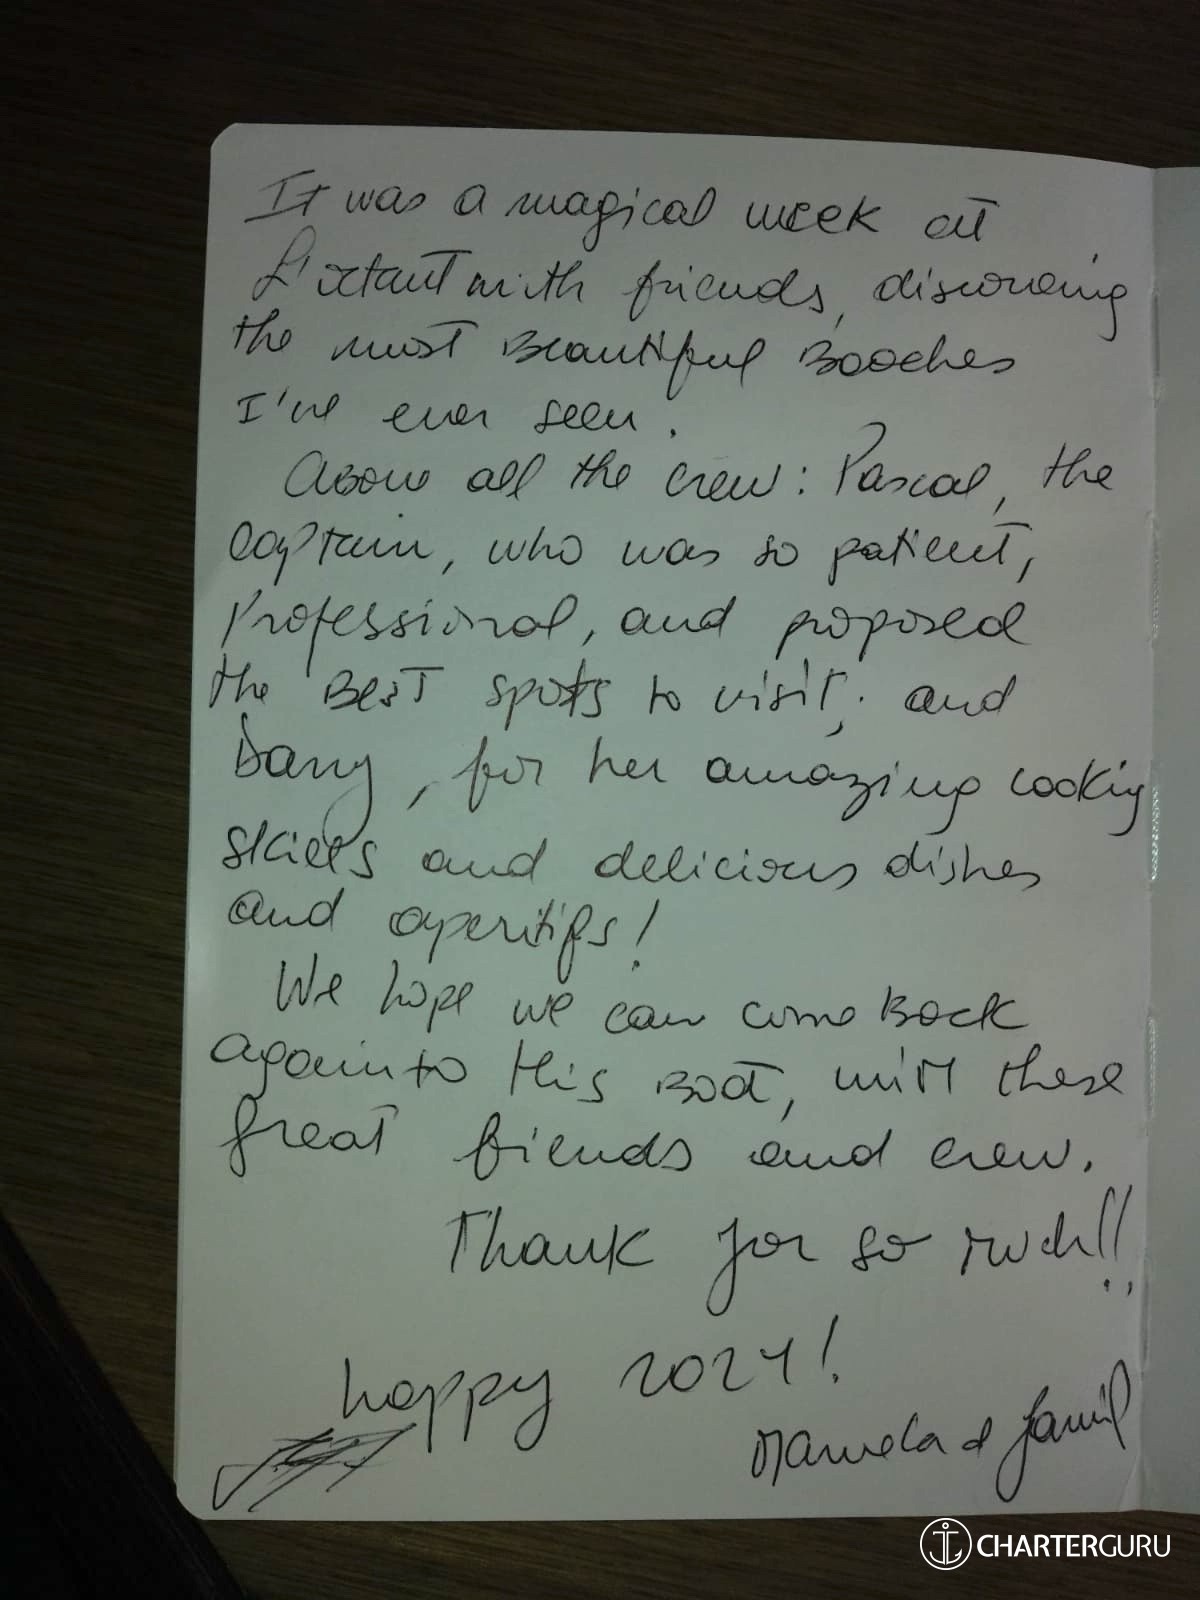 It was a magical week at
L'extant with friends, discovering
the most Beautiful Beaches
I've ever seen.
Above all the crew: Pascal, the
captain, who was so patient,
Professional, and proposed
the BEST spots to visit; and
Dany, for her amazing cooking
skills and delicious dishes
and aperitifs!
We hope we can come Back
again to this Boat, with these
great friends and crew.
Thank you so much!!
happy 2024!
Manuela e Jamil
CHARTERGURU